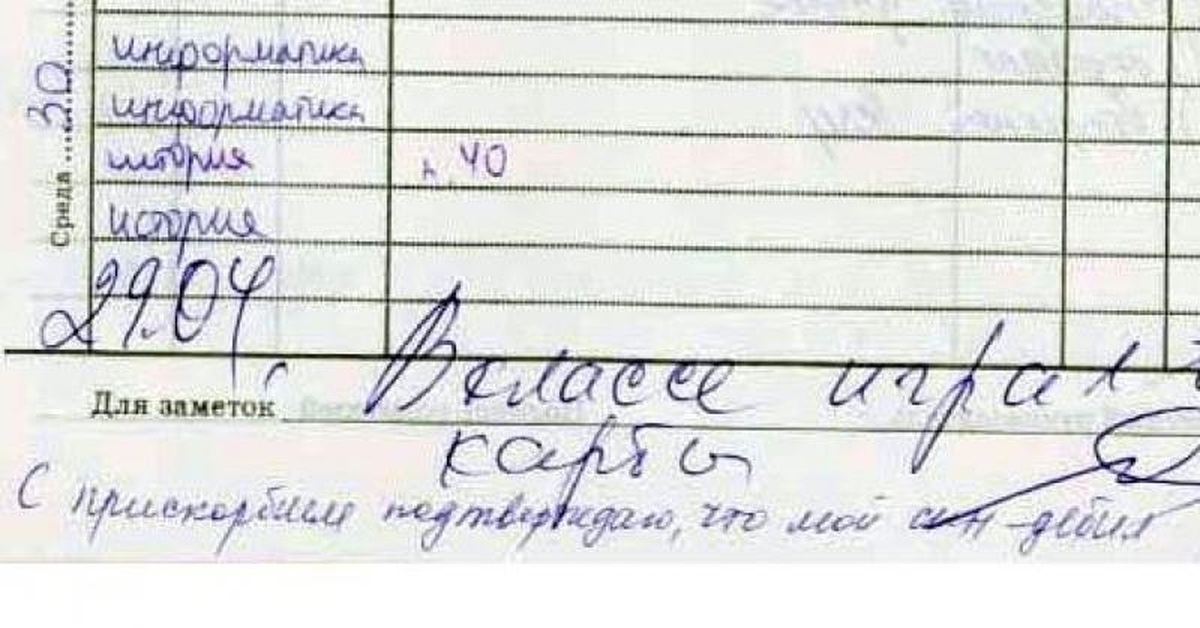 информатика
информатика
история
п. 40
история
Среда 30
29.04
В классе играл
Для заметок
карты
С прискорбием подтверждаю, что мой сын - дебил